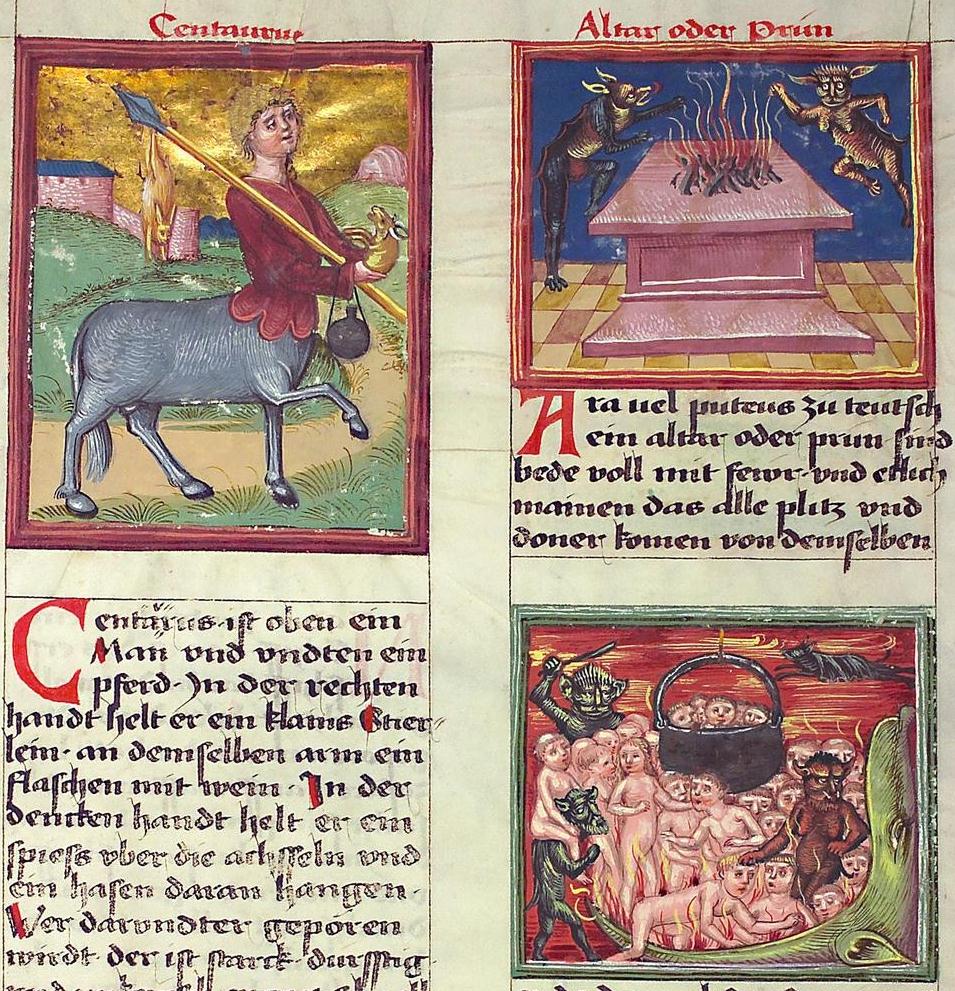 Centaurus
Centaurus ist oben ein
Man vnd vndten ein
pferd. In der rechten
handt helt er ein klains Stier
lein. an demselben arm ein
flaschen mit wein. In der
dencken handt helt er ein
spiess vber die achsseln vnd
ein hasen daran hangen.
Wer darundter geporen
wirdt der ist starck. durstig
Altar oder Prun
Ara uel puteus zu teutsch
ein altar oder prun sind
bede voll mit fewr. vnd etlich
mainen das alle plitz vnd
doner komen von demselben